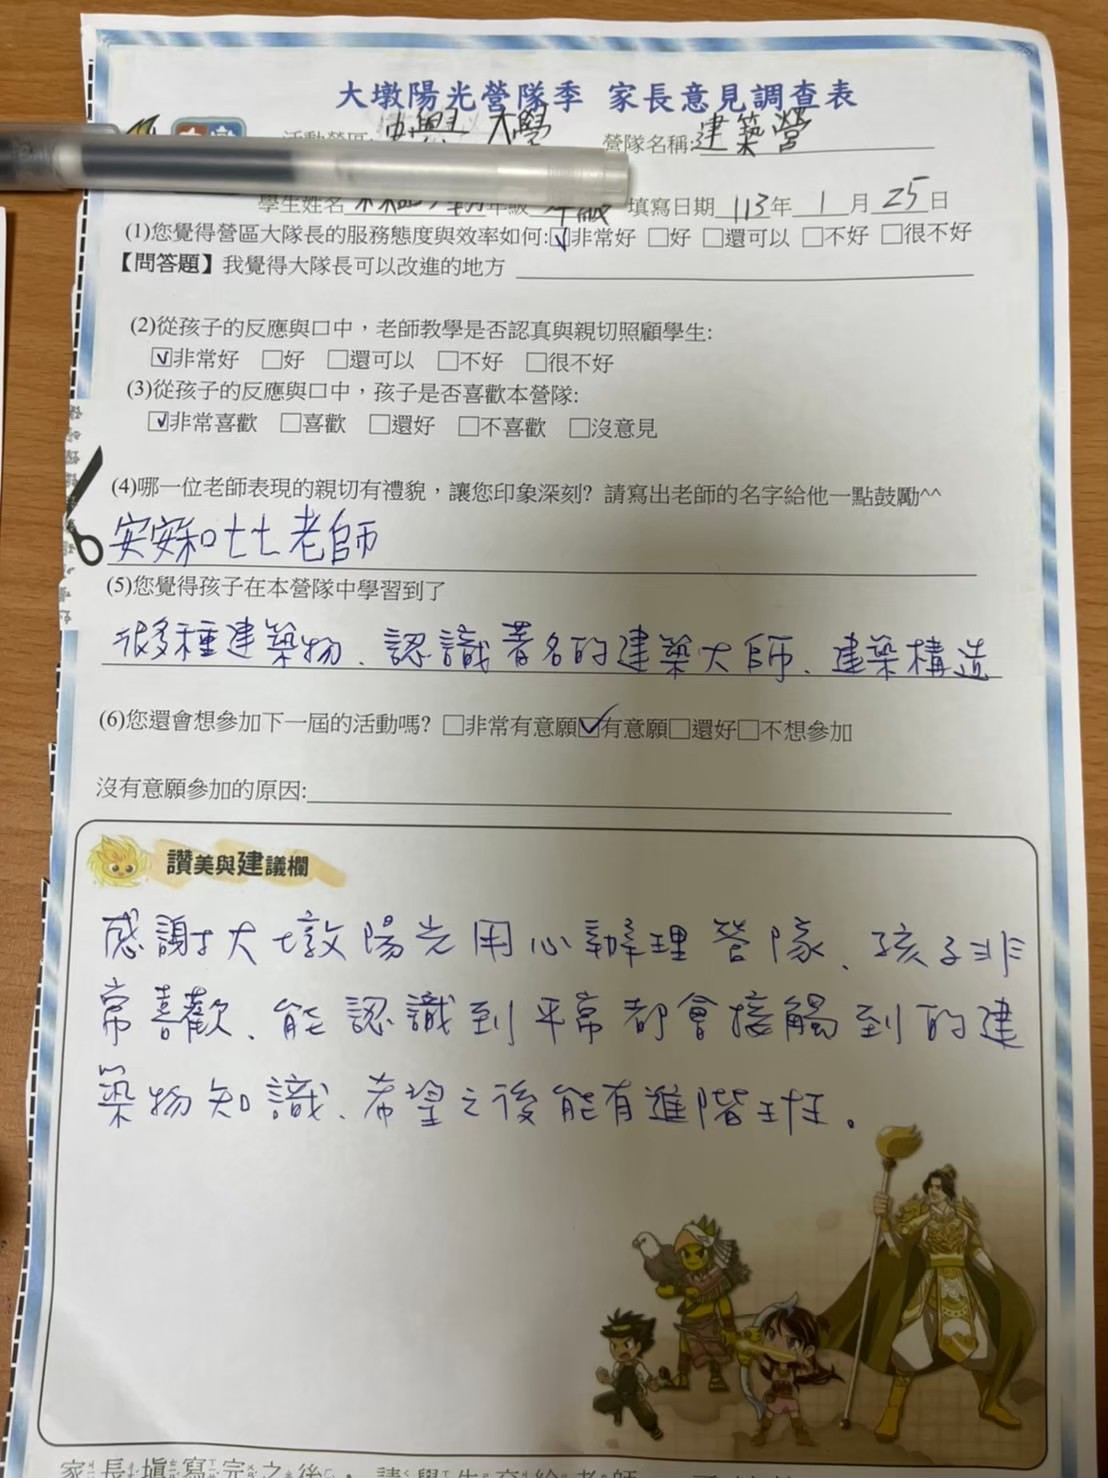 大墩陽光營隊季 家長意見調查表
活動營區: 中興 大學 營隊名稱: 建築營
學生姓名 年級 年級 填寫日期 113年 1 月 25 日
(1)您覺得營區大隊長的服務態度與效率如何:☑非常好 □好 □還可以 □不好 □很不好
【問答題】我覺得大隊長可以改進的地方
(2)從孩子的反應與口中，老師教學是否認真與親切照顧學生:
☑非常好 □好 □還可以 □不好 □很不好
(3)從孩子的反應與口中，孩子是否喜歡本營隊:
☑非常喜歡 □喜歡 □還好 □不喜歡 □沒意見
(4)哪一位老師表現的親切有禮貌，讓您印象深刻? 請寫出老師的名字給他一點鼓勵^^
安安和七七老師
(5)您覺得孩子在本營隊中學習到了
很多種建築物、認識著名的建築大師、建築構造
(6)您還會想參加下一屆的活動嗎? □非常有意願☑有意願□還好□不想參加
沒有意願參加的原因:
讚美與建議欄
感謝大墩陽光用心辦理營隊、孩子非
常喜歡、能認識到平常都會接觸到的建
築物知識、希望之後能有進階班。
家長填寫完之後，請學生交給老師